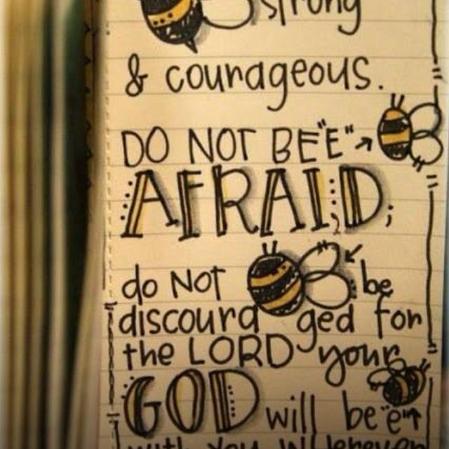 strong
& courageous.
DO NOT BE"E"
AFRAID;
do NOT be
discouraged for
the LORD your
GOD will be"e"
with you wherever